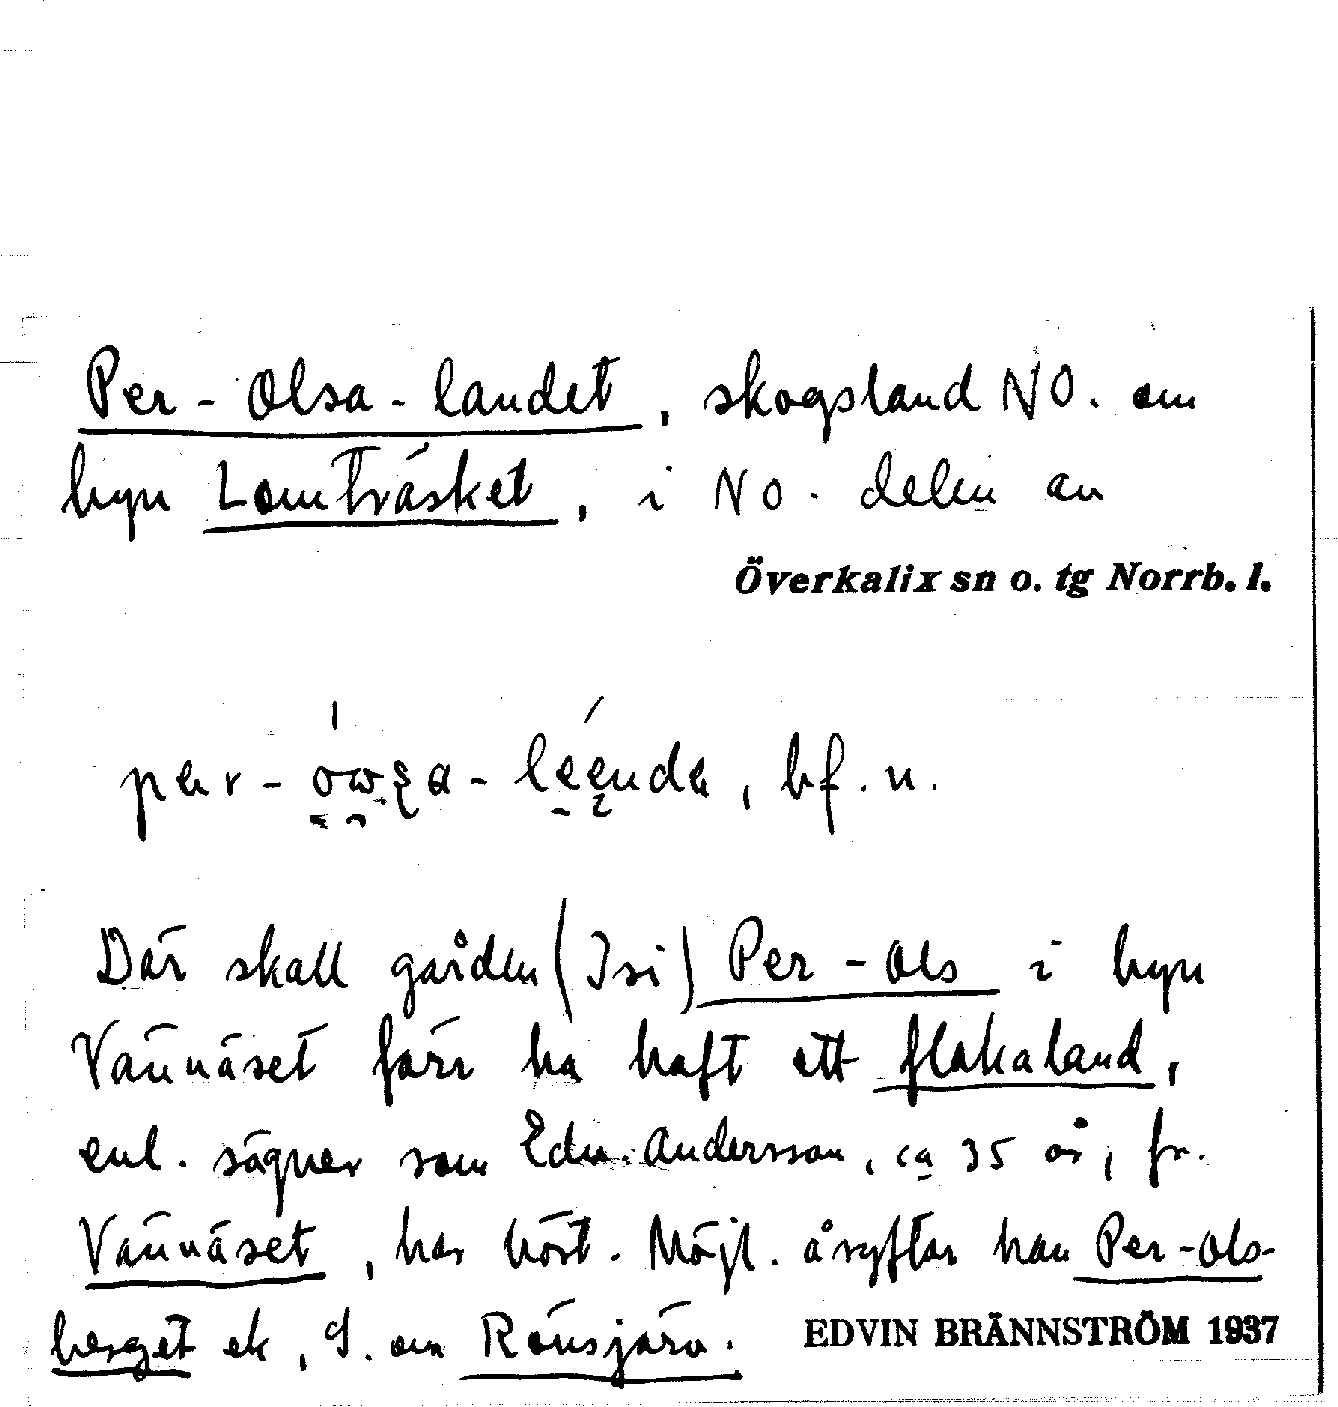 Per-Olsa-landet, skogsland NO. om
byn Lomträsket, i NO. delen av
Överkalix sn o. tg Norrb. l.
bf. n.
Där skall gården (Isi) Per-Ols i byn
Vännäset förr ha haft ett flakaland,
enl. sägner som Edv. Andersson, ca 35 år, fr.
Vännäset, har hört. Möjl. åsyftar han Per-Ols-
berget ek, S. om Rönsjärv.
EDVIN BRÄNNSTRÖM 1937